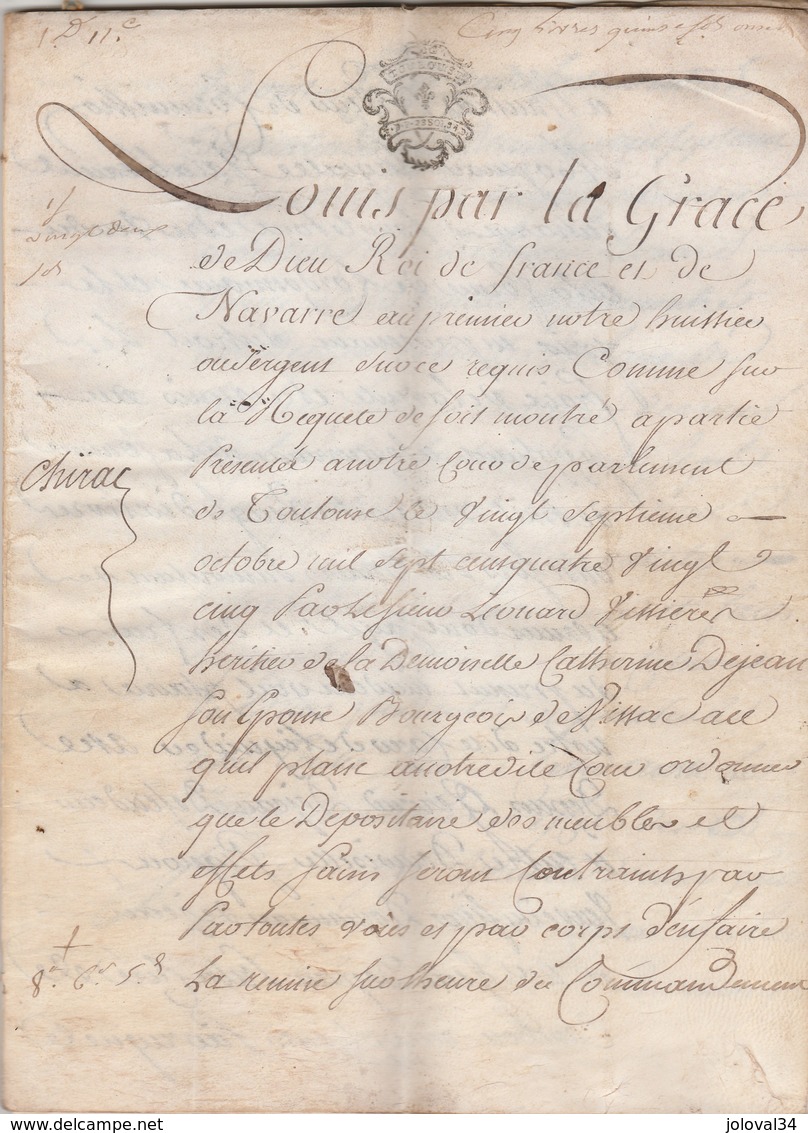 1 D 11 c
Cinq livres quinse sols
vingt deux
sols
Louis par la Grace
de Dieu Roi de france et de
Navarre au premier notre huissier
ou sergent sur ce requis Comme sur
la Requete de soit montré a partie
Presentée a notre Cour de parlement
de Toulouse le vingt septieme
octobre mil sept cens quatre vingt
cinq Par le sieur Léonard Vissieres
Chirac
heritier de la Demoiselle Catherine Dejean
son Epouse Bourgeois de Nissac a ce
quil plaise a notre dite Cour ordonner
que le Depositaire des meubles et
effets saisis seront Contraints par
Par toutes voies et par corps d'en faire
La remise sur l'heure du Commandement
8 6 5
joloval34